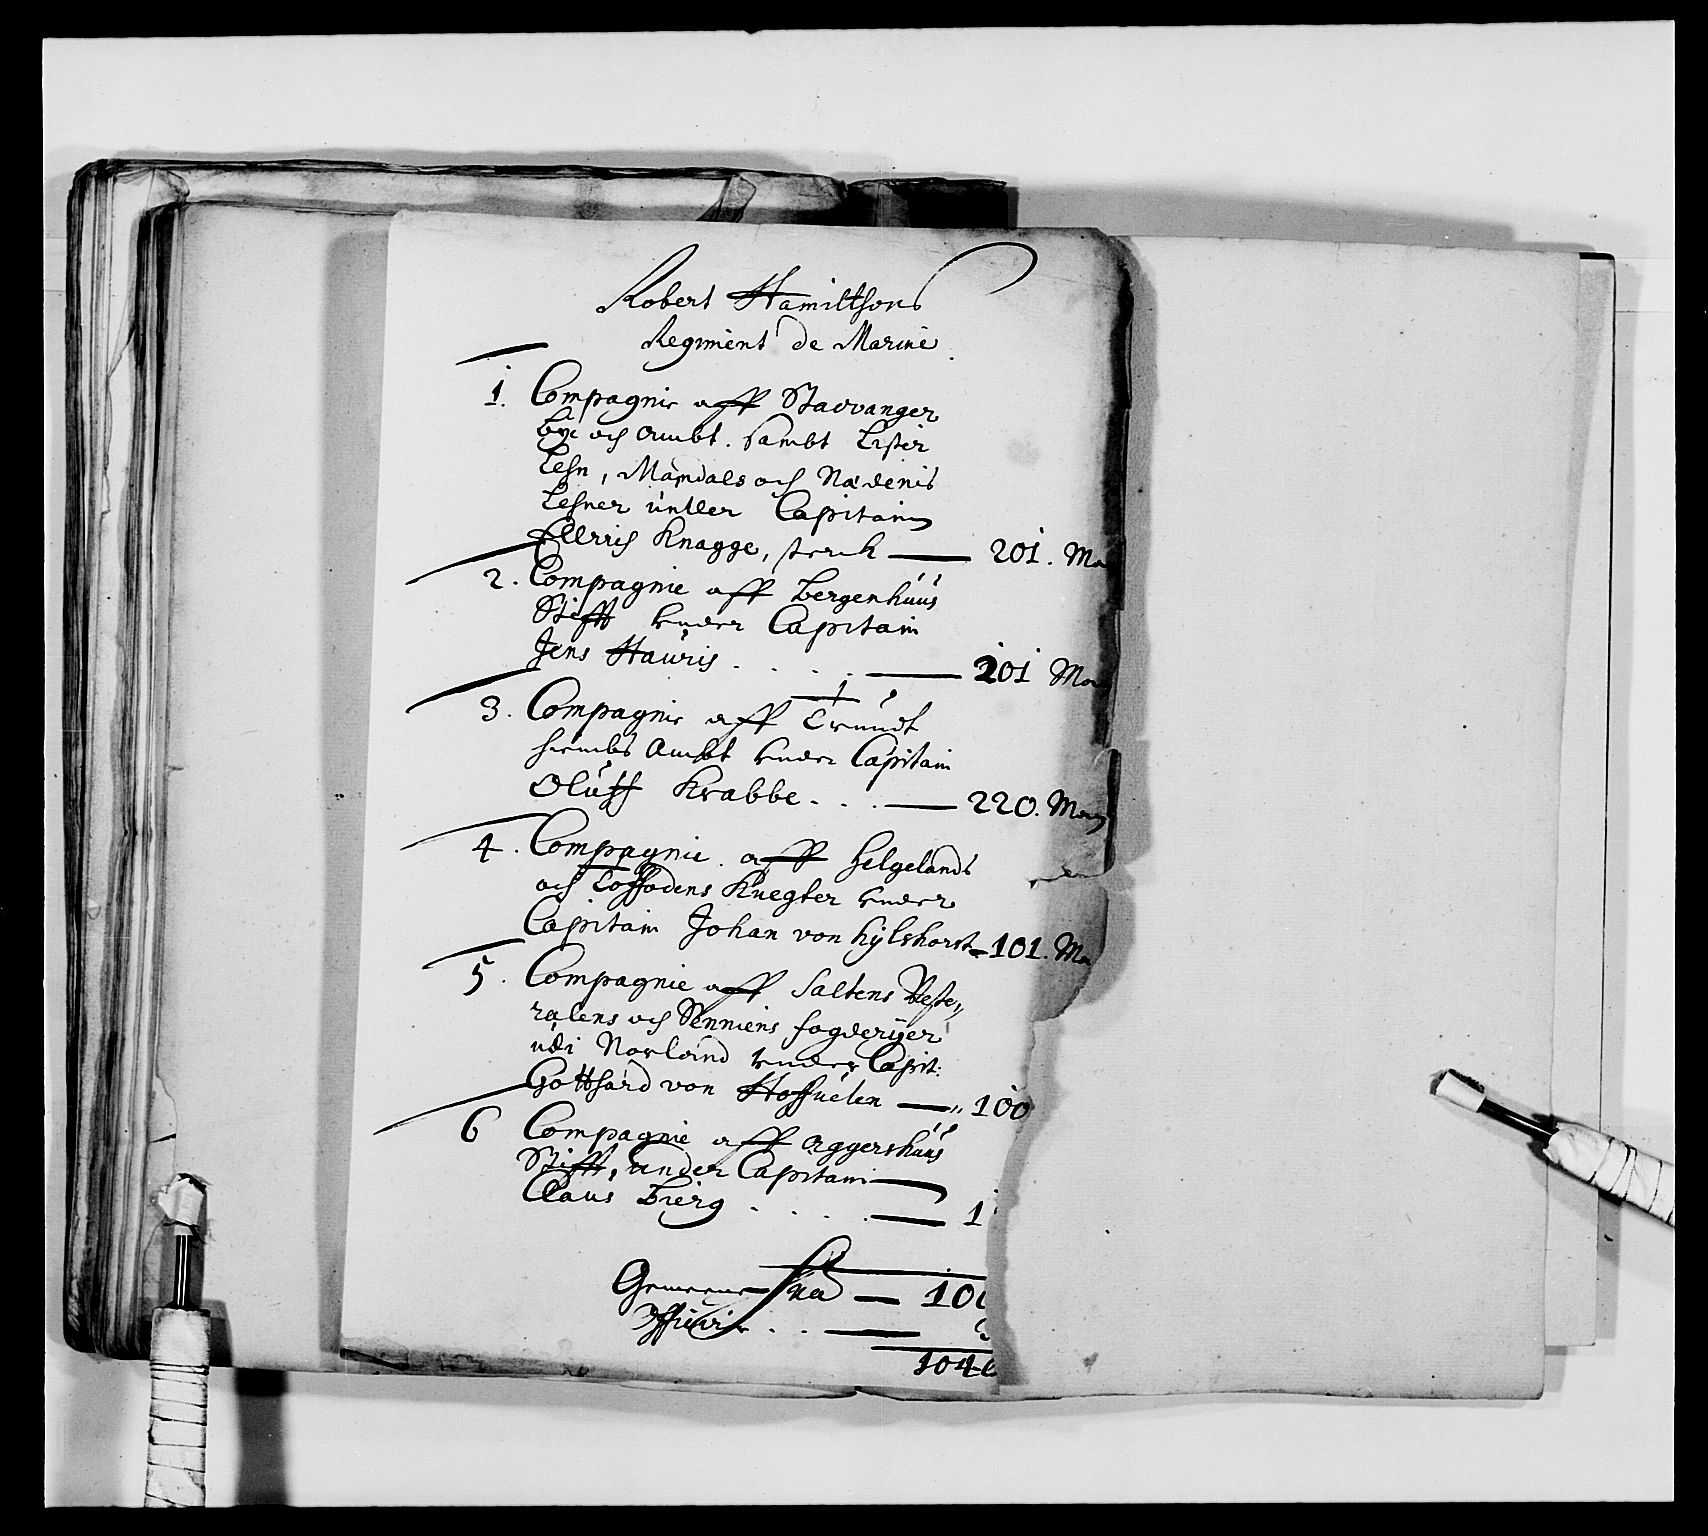 Robert Hamiltsons
Regiment de Marine
1. Compagnie aff Stavanger
bye och Ambt. sambt Lister
Lehn, Mandals och Nædenis
Lehner under Capitain
Ulrich Knagge, sterck — 201. Ma
2. Compagnie aff Bergenhuus
Stifft under Capitain
Jens Hauris . . . . — 201 Man
3. Compagnie aff Trundt
hiembs Ambt under Capitain
Oluff Krabbe . . . — 220. Man
4. Compagnie aff Helgelands
och Loffodens Knegter under
Capitain Johan von Hylshorst — 101. Ma
5. Compagnie aff Saltens Veste„
ralens och Senniens fogderyer
udi Norland under Capit:
Gotthard von — 100
6 Compagnie aff Aggershuus
Stifft, under Capitain —
Claus Bierg . . . . — 1
Gemeene Sua — 10
Officirer . . —
104